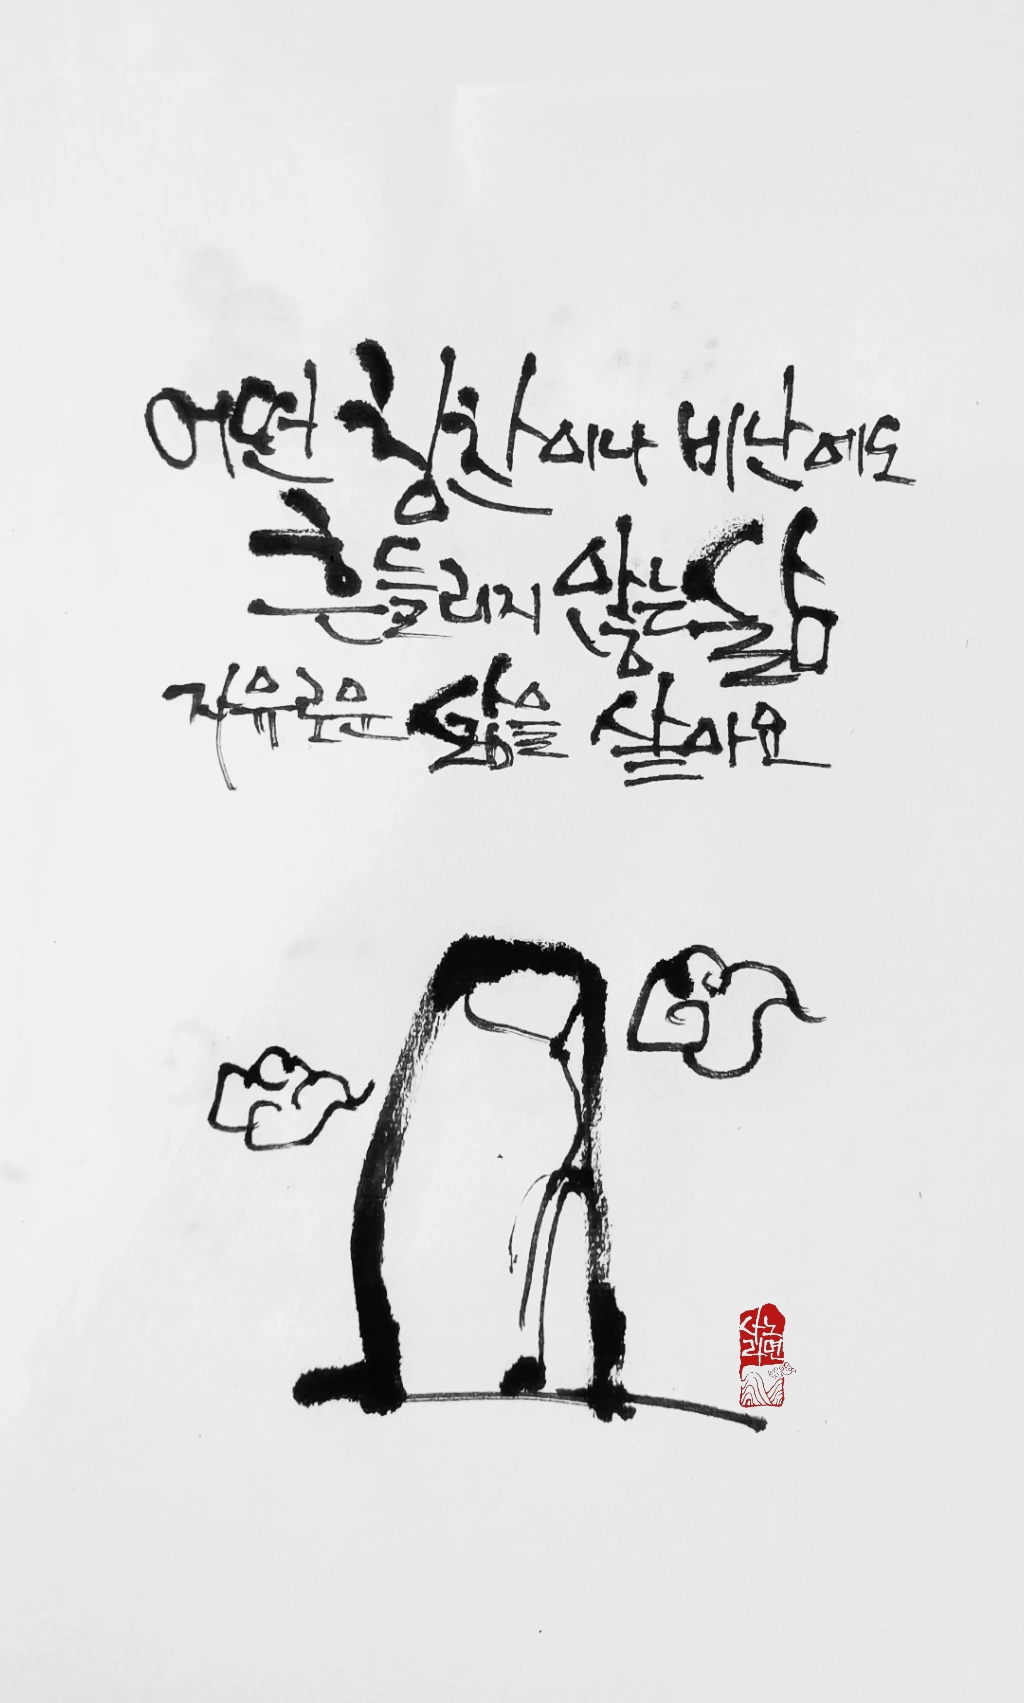 어떤 칭찬이나 비난에도
흔들리지 않는 삶
자유로운 삶을 살아요